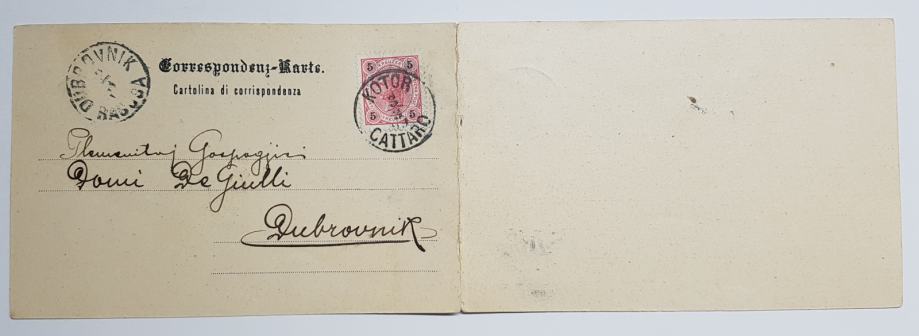 DUBROVNIK RAGUSA
Correspondenz-Karte.
Cartolina di corrispondenza
5 5
5 5
KOTOR
CATTARO
Plemenitoj Gospogjici
Domi De Giulli
Dubrovnik